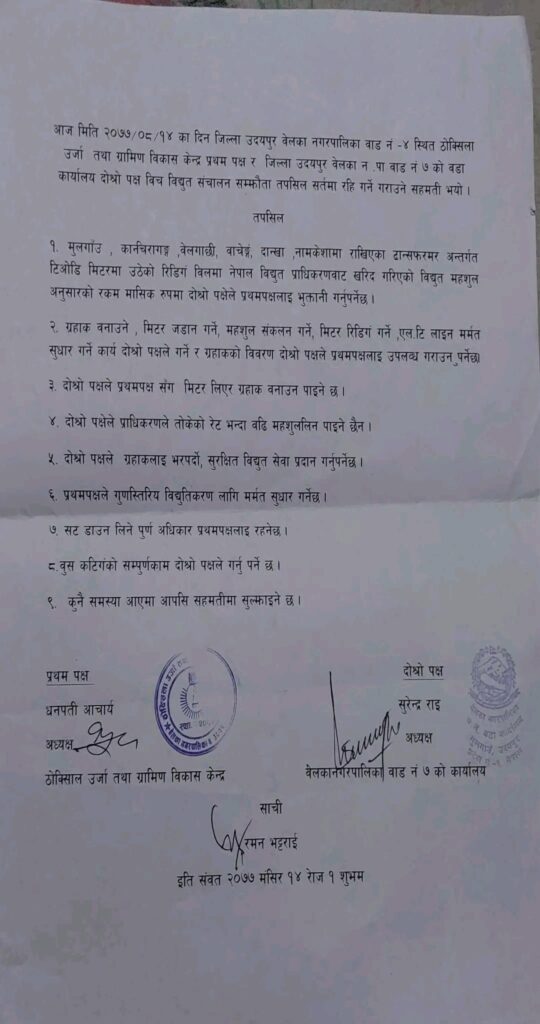 आज मिति २०७७/०८/१४ का दिन जिल्ला उदयपुर वेलका नगरपालिका वाड नं -४ स्थित ठोक्सिला
उर्जा तथा ग्रामिण विकास केन्द्र प्रथम पक्ष र जिल्ला उदयपुर वेलका न .पा वाड नं ७ को वडा
कार्यालय दोश्रो पक्ष विच विद्युत संचालन सम्झौता तपसिल सर्तमा रहि गर्ने गराउने सहमती भयो ।
तपसिल
१. मुलगाँउ , कार्नचिरागञ्ज ,वेलगाछी, वाचेङ्गं, दान्खा ,नामकेशामा राखिएका ट्रान्सफरमर अन्तर्गत
टिओडि मिटरमा उठेको रिडिंग विलमा नेपाल विद्युत प्राधिकरणवाट खरिद गरिएको विद्युत महशुल
अनुसारको रकम मासिक रुपमा दोश्रो पक्षेले प्रथमपक्षलाइ भुक्तानी गर्नुपर्नेछ ।
२. ग्रहाक वनाउने , मिटर जडान गर्ने, महशुल संकलन गर्ने, मिटर रिडिगं गर्ने ,एल.टि लाइन मर्मत
सुधार गर्ने कार्य दोश्रो पक्षले गर्ने र ग्रहाकको विवरण दोश्रो पक्षले प्रथमपक्षलाइ उपलव्ध गराउनु पर्नेछ।
३. दोश्रो पक्षले प्रथमपक्ष संग मिटर लिएर ग्रहाक वनाउन पाइने छ ।
४. दोश्रो पक्षेले प्राधिकरणले तोकेको रेट भन्दा वढि महशुललिन पाइने छैन ।
५. दोश्रो पक्षले ग्रहाकलाइ भरपर्दो, सुरक्षित विद्युत सेवा प्रदान गर्नुपर्नेछ ।
६. प्रथमपक्षले गुणस्तिरिय विद्युतिकरण लागि मर्मत सुधार गर्नेछ ।
७. सट डाउन लिने पुर्ण अधिकार प्रथमपक्षलाइ रहनेछ ।
८.वुस कटिगंको सम्पुर्णकाम दोश्रो पक्षले गर्नु पर्ने छ ।
९. कुनै समस्या आएमा आपसि सहमतीमा सुल्झाइने छ ।
प्रथम पक्ष
दोश्रो पक्ष
धनपती आचार्य
सुरेन्द्र राइ
अध्यक्ष
अध्यक्ष
ठोक्सिाल उर्जा तथा ग्रामिण विकास केन्द्र
वेलकानगरपालिका वाड नं ७ को कार्यालय
साची
रमन भट्टराई
इति संवत २०७७ मंसिर १४ रोज १ शुभम